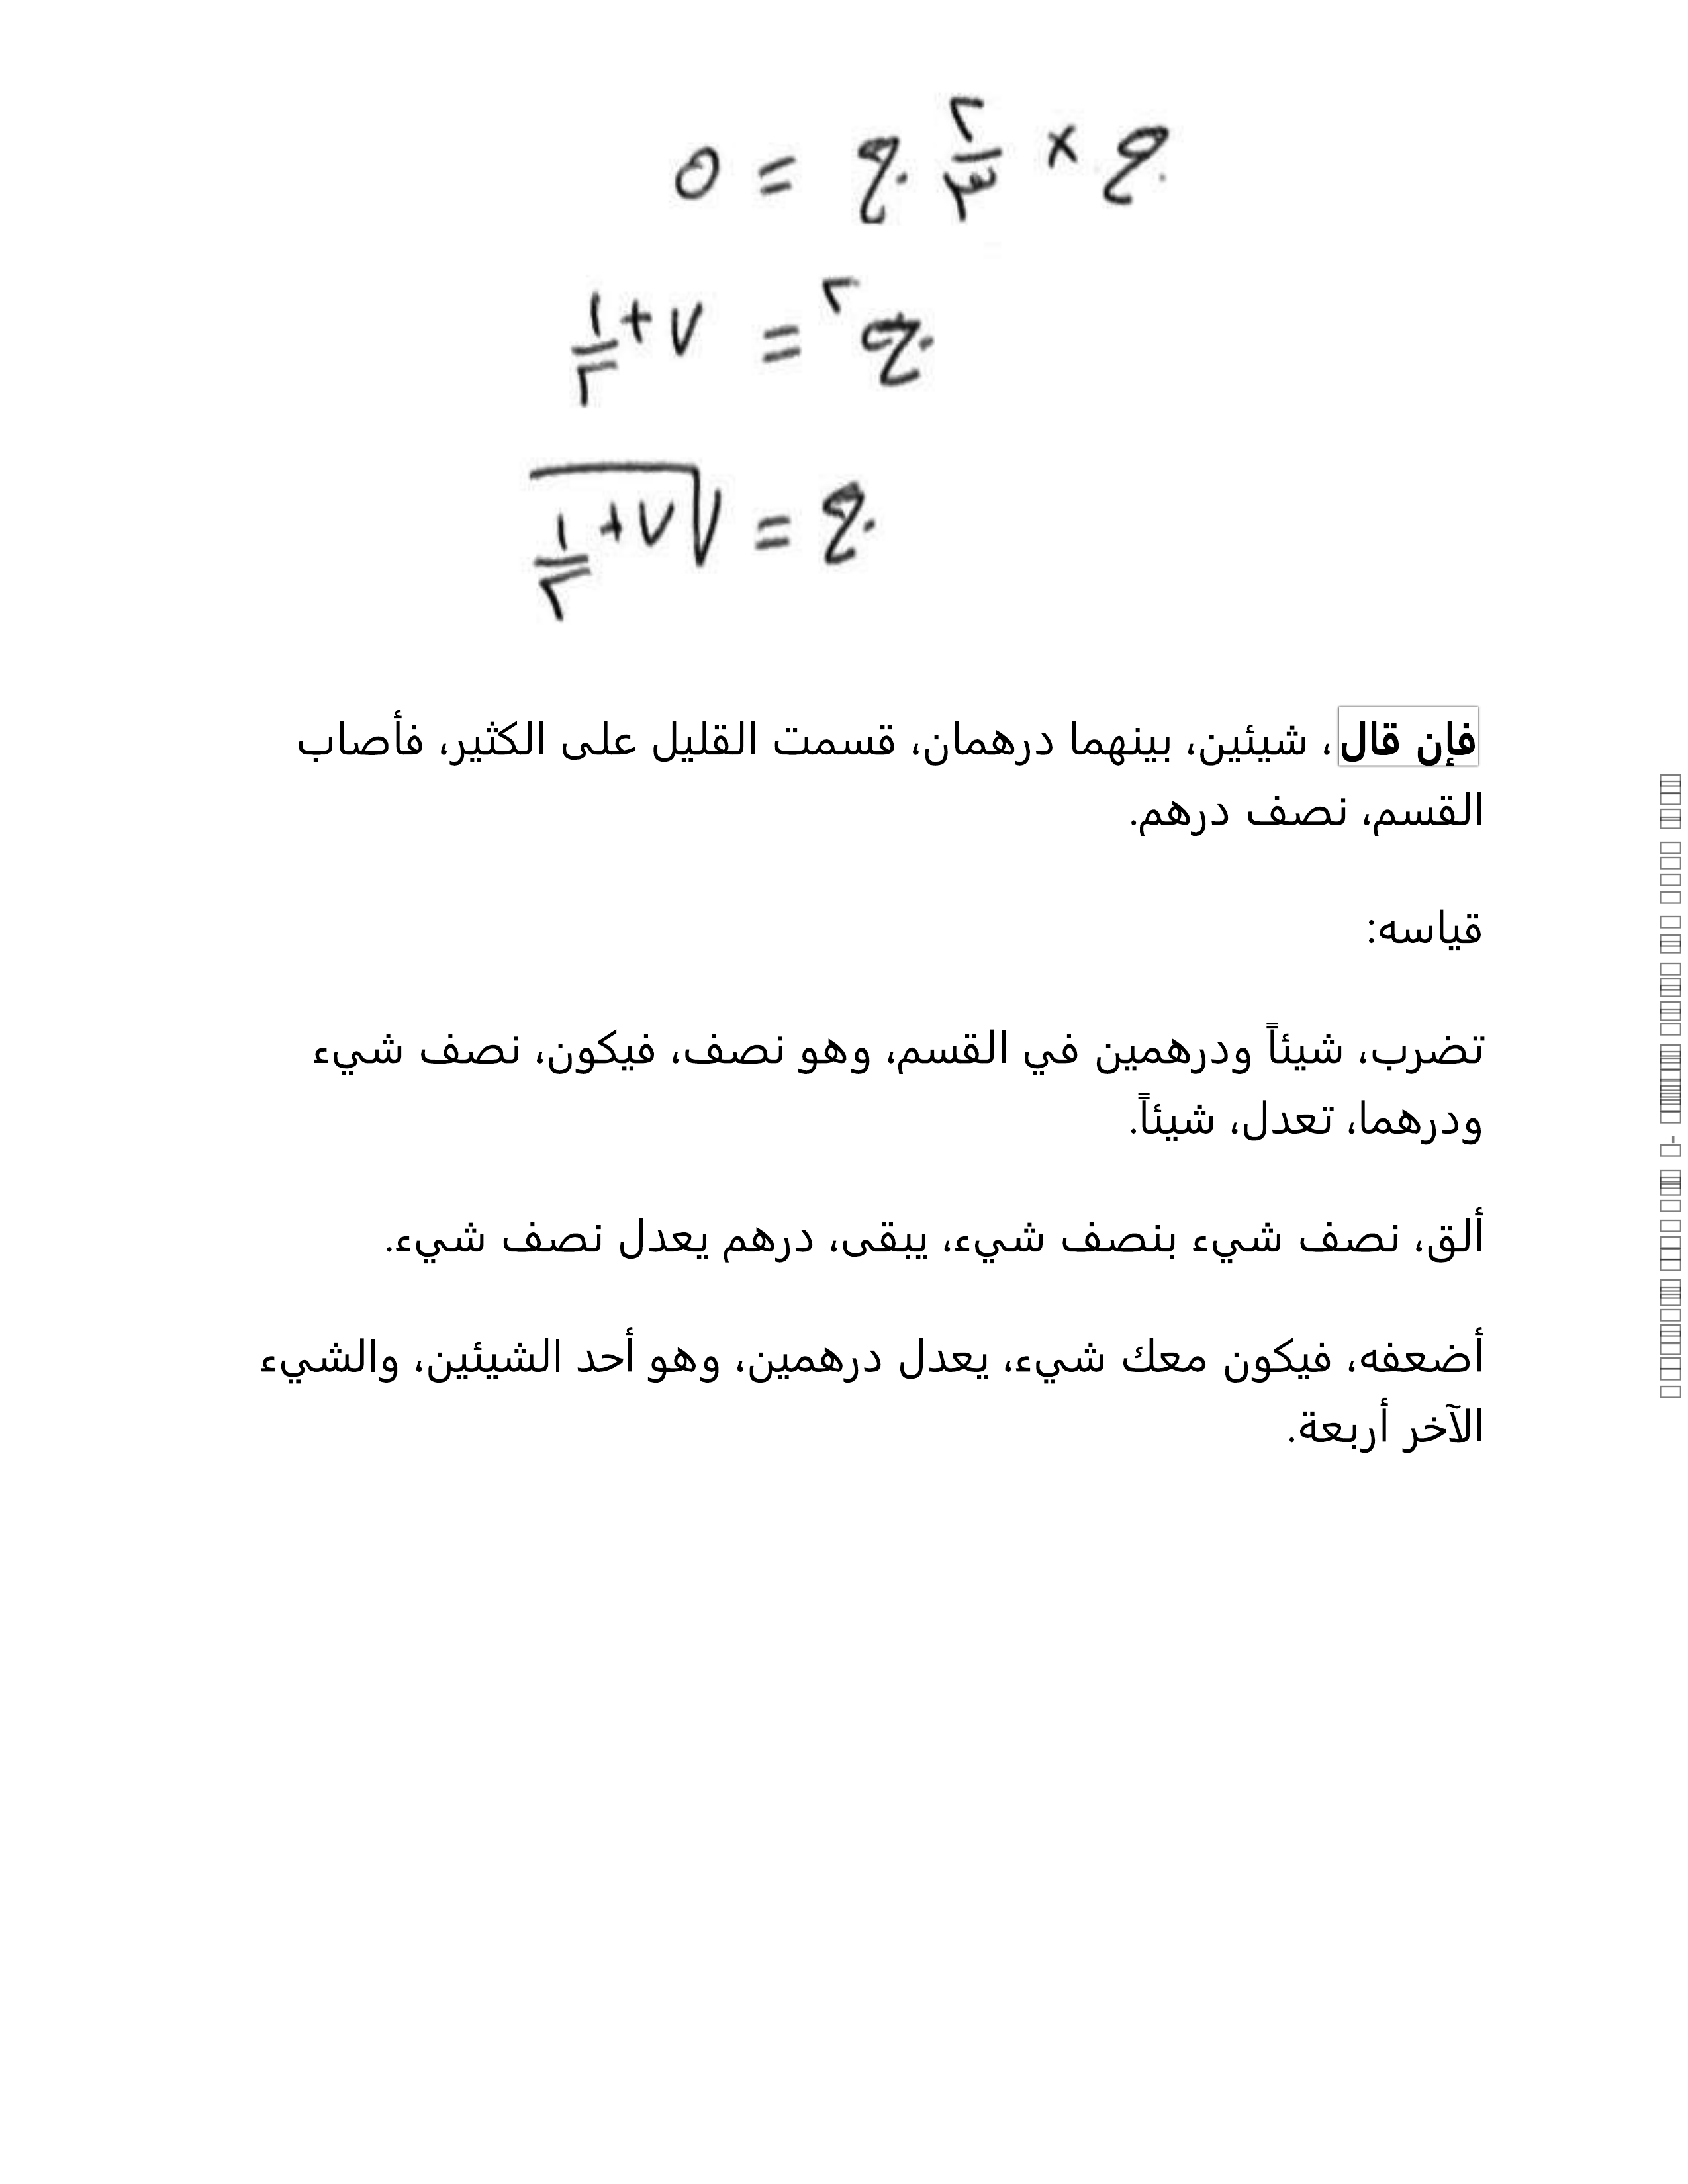 ج × ٢/٣ ج = ٥
ج٢ = ٧ + ١/٢
ج = √(٧ + ١/٢)
فإن قال، شيئين، بينهما درهمان، قسمت القليل على الكثير، فأصاب
القسم، نصف درهم.
قياسه:
تضرب، شيئاً ودرهمين في القسم، وهو نصف، فيكون، نصف شيء
ودرهما، تعدل، شيئاً.
ألق، نصف شيء بنصف شيء، يبقى، درهم يعدل نصف شيء.
أضعفه، فيكون معك شيء، يعدل درهمين، وهو أحد الشيئين، والشيء
الآخر أربعة.